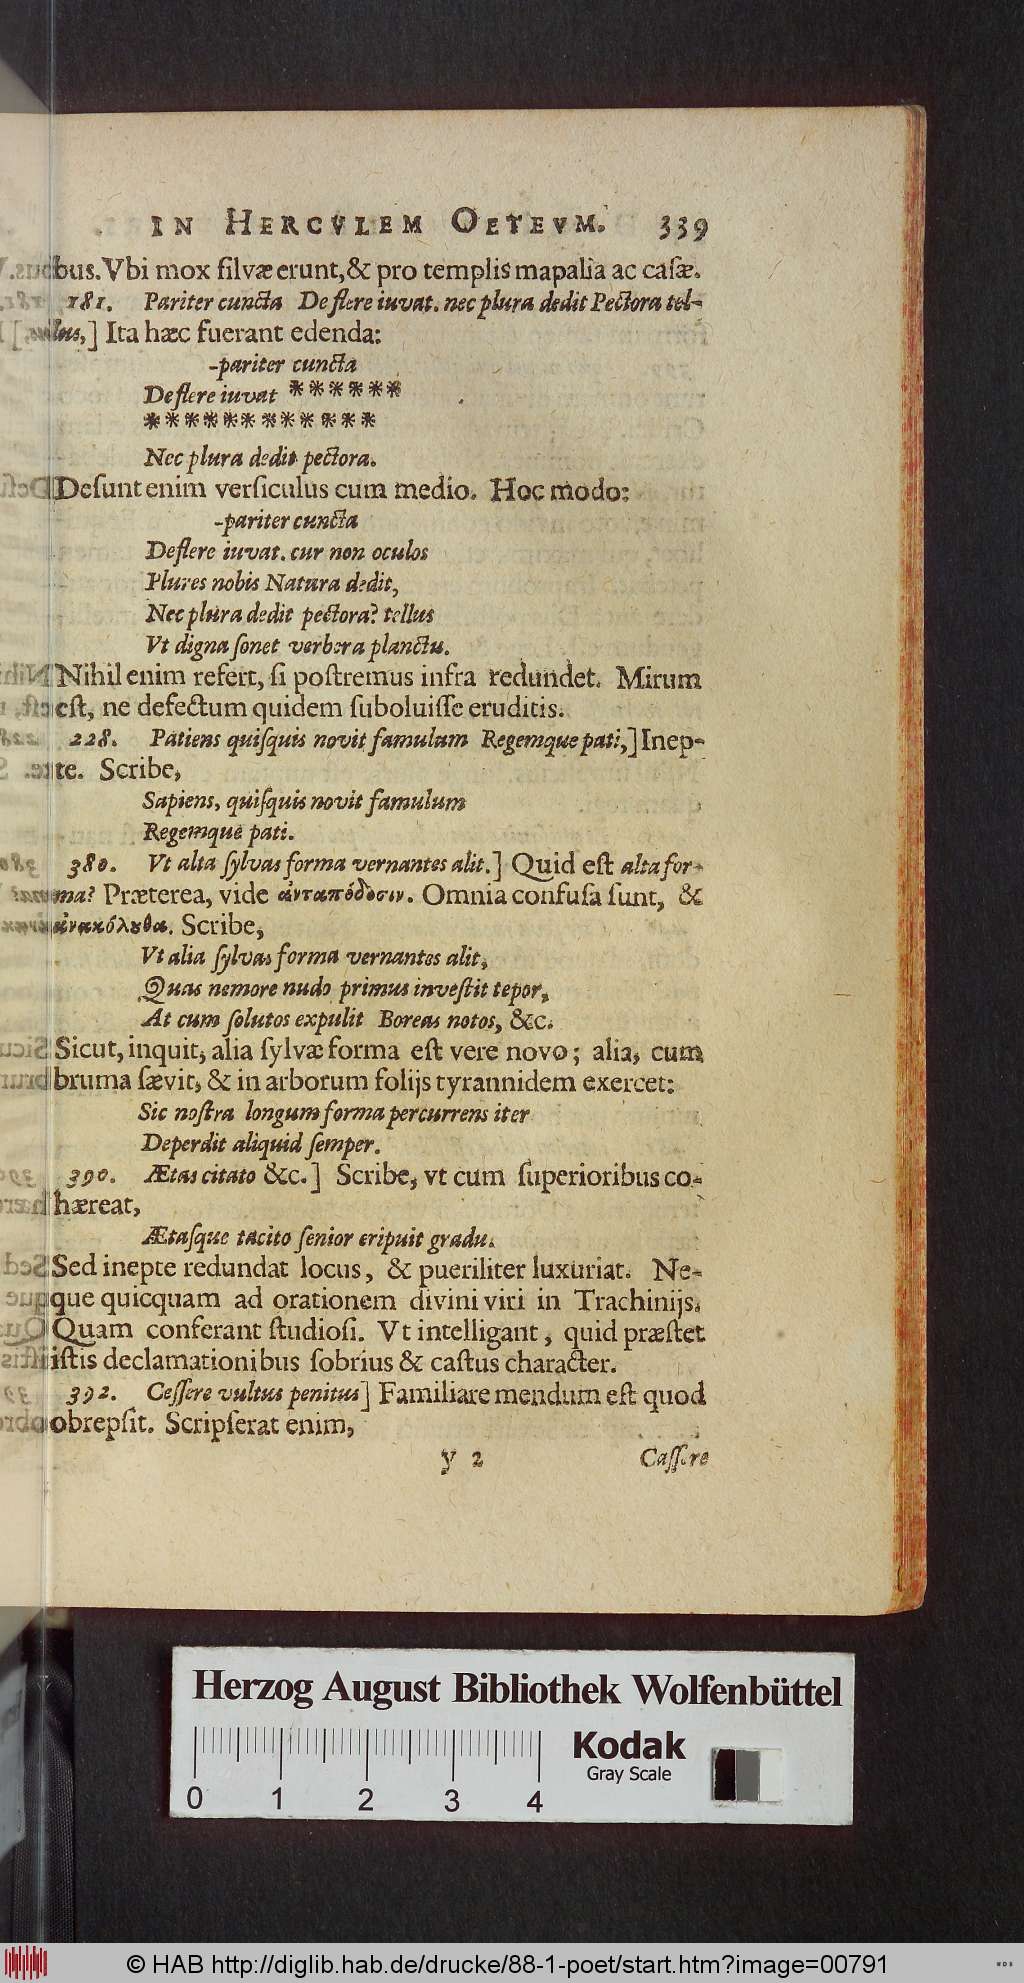 IN HERCVLEM OETEVM. 339
bus. Vbi mox silvæ erunt, & pro templis mapalia ac casæ.
181. Pariter cuncta Deflere iuvat. nec plura dedit Pectora tel-
lus,] Ita hæc fuerant edenda:
-pariter cuncta
Deflere iuvat ******
************
Nec plura dedit pectora.
Desunt enim versiculus cum medio. Hoc modo:
-pariter cuncta
Deflere iuvat. cur non oculos
Plures nobis Natura dedit,
Nec plura dedit pectora? tellus
Vt digna sonet verbera planctu.
Nihil enim refert, si postremus infra redundet. Mirum
est, ne defectum quidem suboluisse eruditis.
228. Patiens quisquis novit famulum Regemque pati,] Inep-
te. Scribe,
Sapiens, quisquis novit famulum
Regemque pati.
380. Vt alta sylvas forma vernantes alit.] Quid est alta for-
ma? Præterea, vide ἀνταπόδοσιν. Omnia confusa sunt, &
ἀνακόλουθα. Scribe,
Vt alia sylvas forma vernantes alit,
Quas nemore nudo primus investit tepor,
At cum solutos expulit Boreas notos, &c.
Sicut, inquit, alia sylvæ forma est vere novo; alia, cum
bruma sævit, & in arborum folijs tyrannidem exercet:
Sic nostra longum forma percurrens iter
Deperdit aliquid semper.
390. Ætas citato &c.] Scribe, vt cum superioribus co-
hæreat,
Ætasque tacito senior eripuit gradu.
Sed inepte redundat locus, & pueriliter luxuriat. Ne-
que quicquam ad orationem divini viri in Trachinijs.
Quam conferant studiosi. Vt intelligant, quid præstet
istis declamationibus sobrius & castus character.
392. Cessere vultus penitus] Familiare mendum est quod
obrepsit. Scripserat enim,
y 2 Cassere
Herzog August Bibliothek Wolfenbüttel
Kodak
Gray Scale
0 1 2 3 4
© HAB http://diglib.hab.de/drucke/88-1-poet/start.htm?image=00791